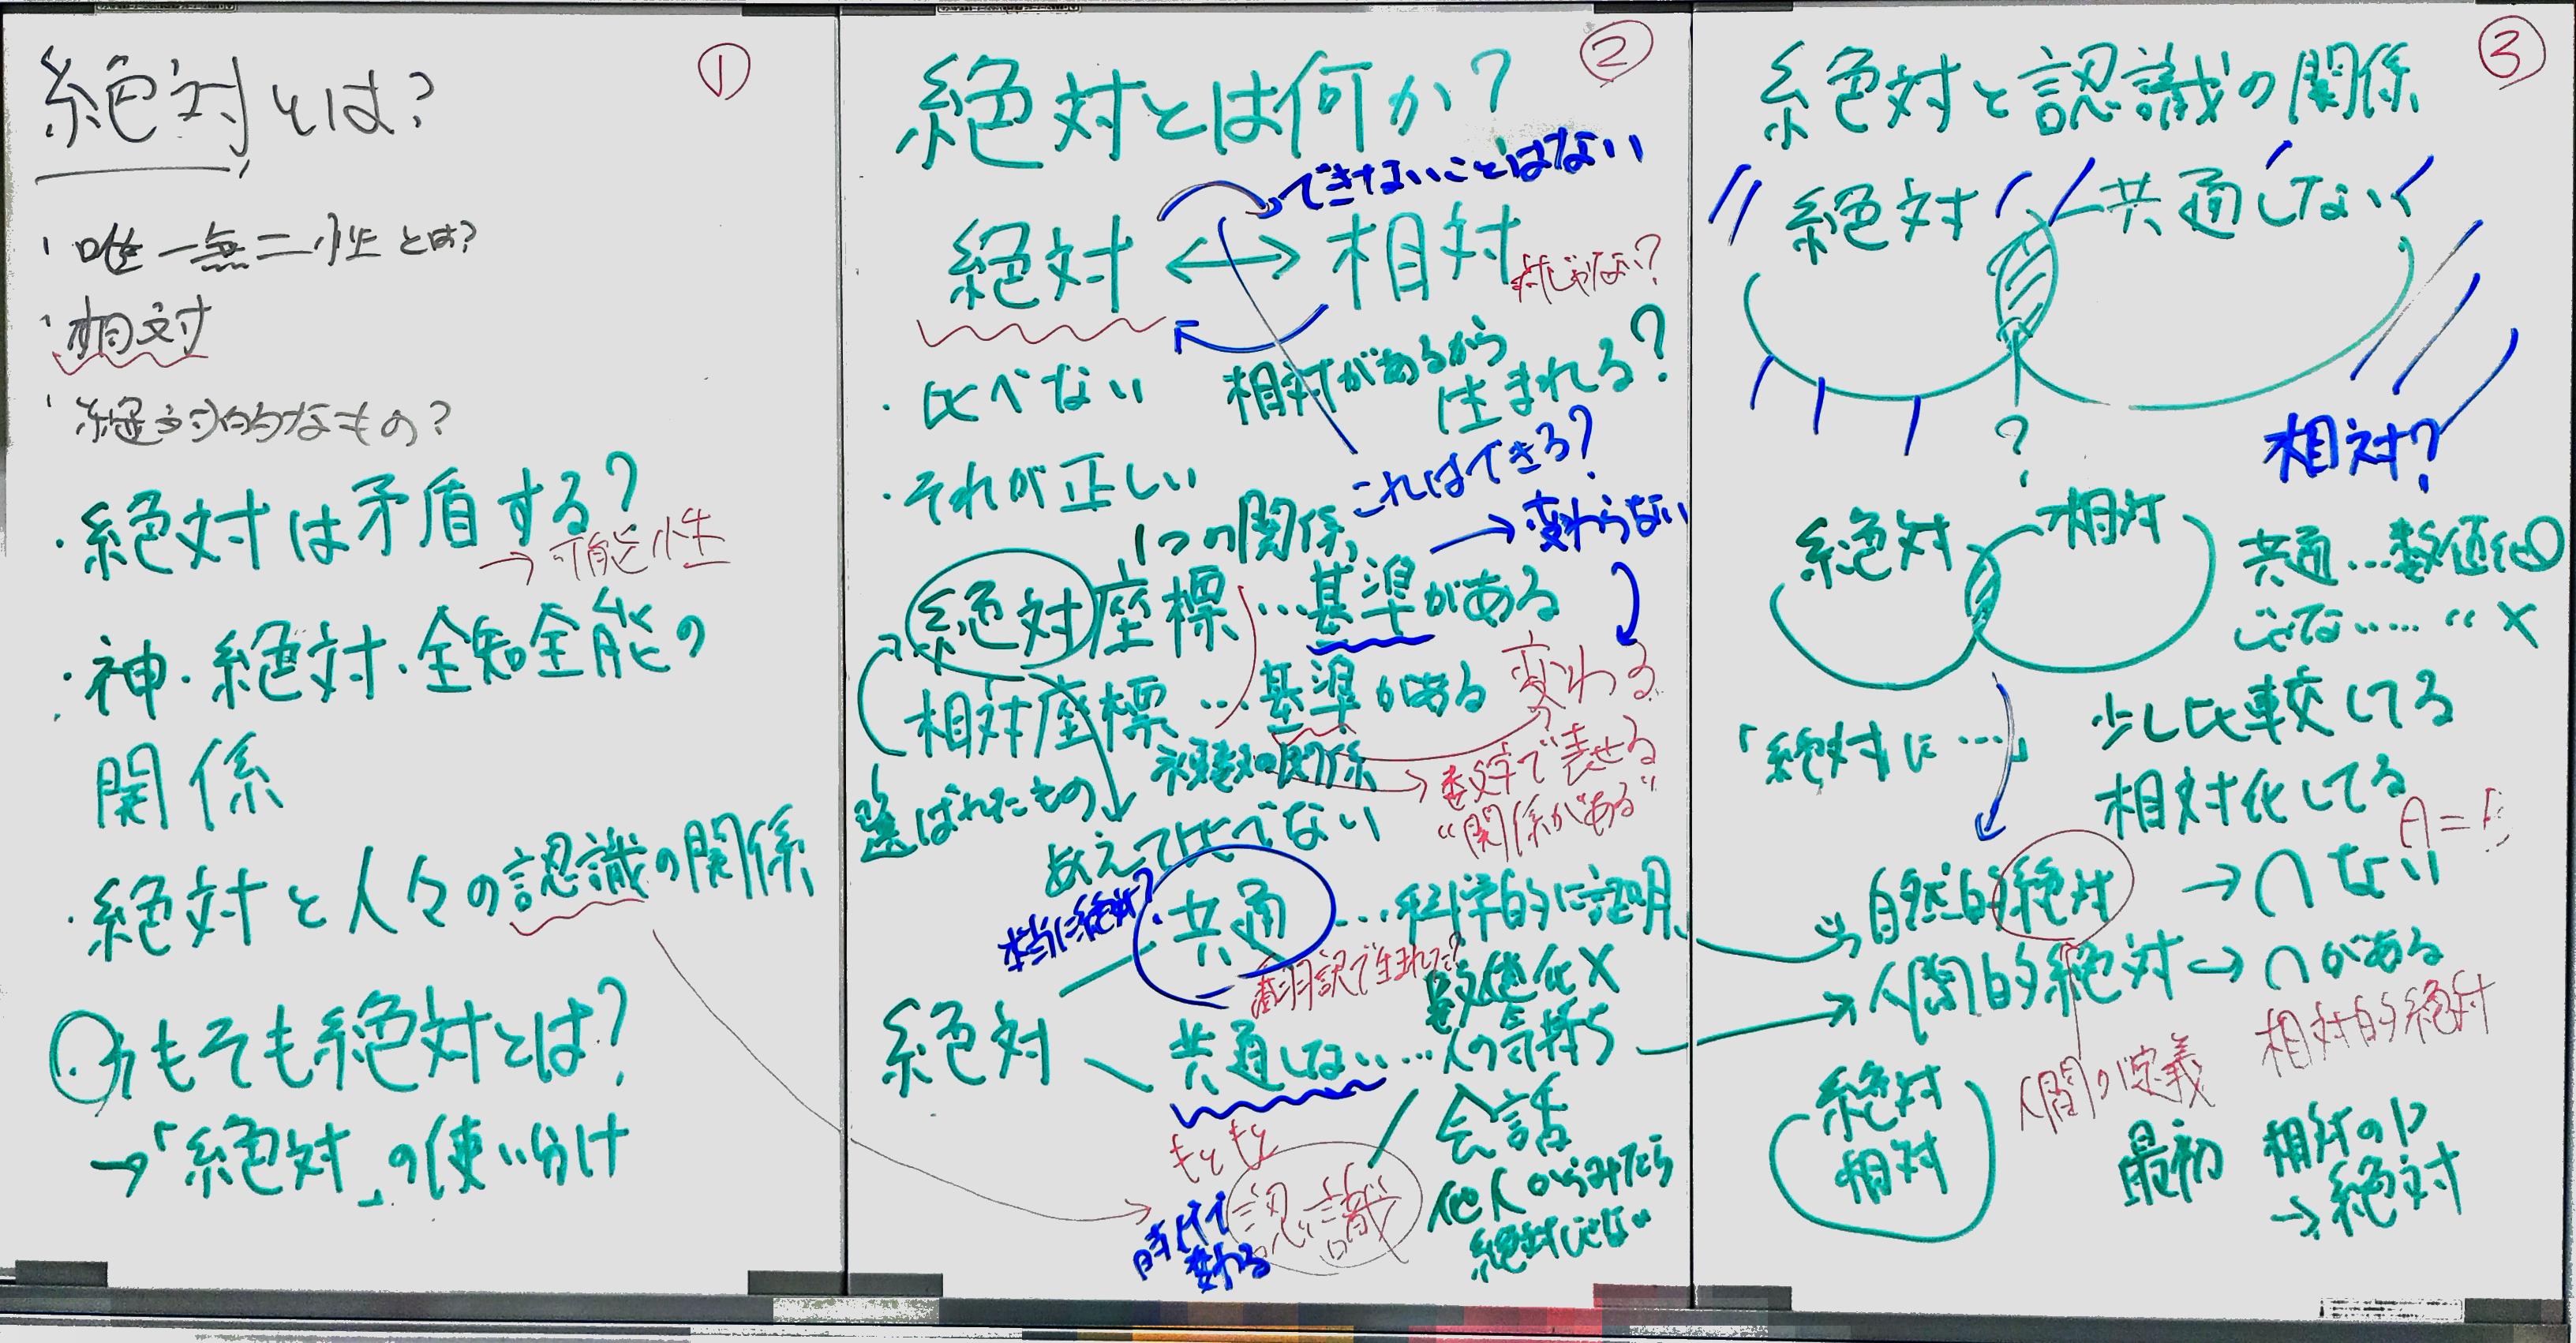 ①
絶対とは?
・唯一無二性とは?
・相対
・絶対的なもの?
・絶対は矛盾する?
→可能性
・神・絶対・全知全能の
関係
・絶対と人々の認識の関係
そもそも絶対とは?
→「絶対」の使い分け
②
絶対とは何か?
できないことはない
絶対 ↔ 相対
対じゃない?
・比べない
相対があるから
生まれる?
・それが正しい
これはできる?
1つの関係
→変わらない
絶対座標…基準がある
変わる
相対座標…基準がある
複数の関係
→数字で表せる
"関係がある"
選ばれたもの
あえて比べない
本当に絶対?
共通…科学的に証明
翻訳で生まれた?
数値化×
絶対
共通しない…人の気持ち
会話
他人からみたら
絶対じゃない
もともと
認識
時代で
変わる
③
絶対と認識の関係
絶対
共通してない
?
相対?
絶対
相対
共通…数値化○
じゃない……〃×
「絶対に…」
少し比較してる
相対化してる
自然的絶対→∩ない
人間的絶対→∩がある
相対的絶対
人間の定義
絶対
相対
最初
相対の中
→絶対